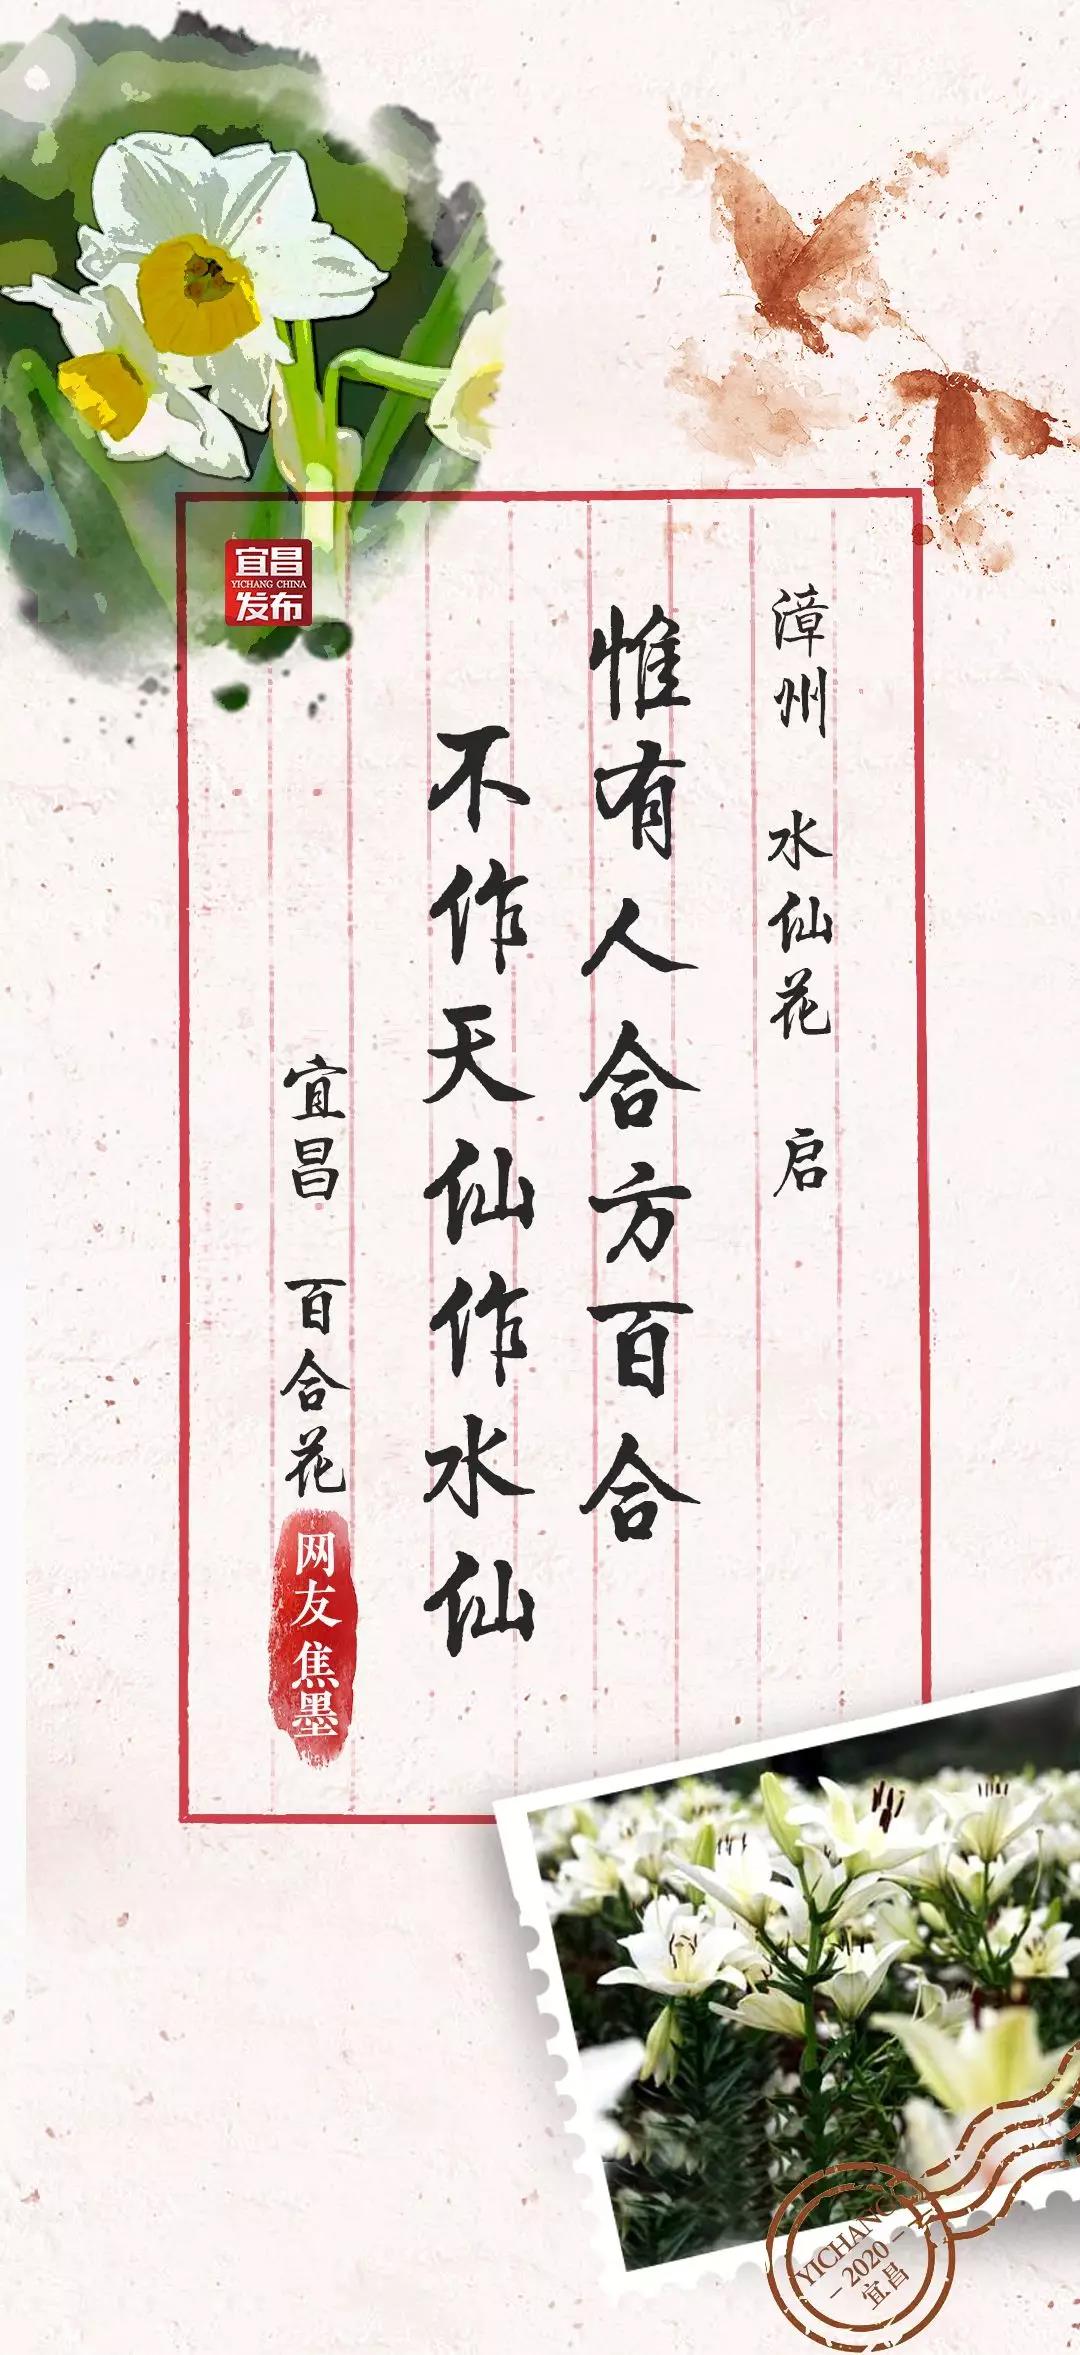 宜昌
YICHANG CHINA
发布
漳州 水仙花 启
惟有人合方百合
不作天仙作水仙
宜昌 百合花
网友 焦墨
YICHANG
2020
宜昌